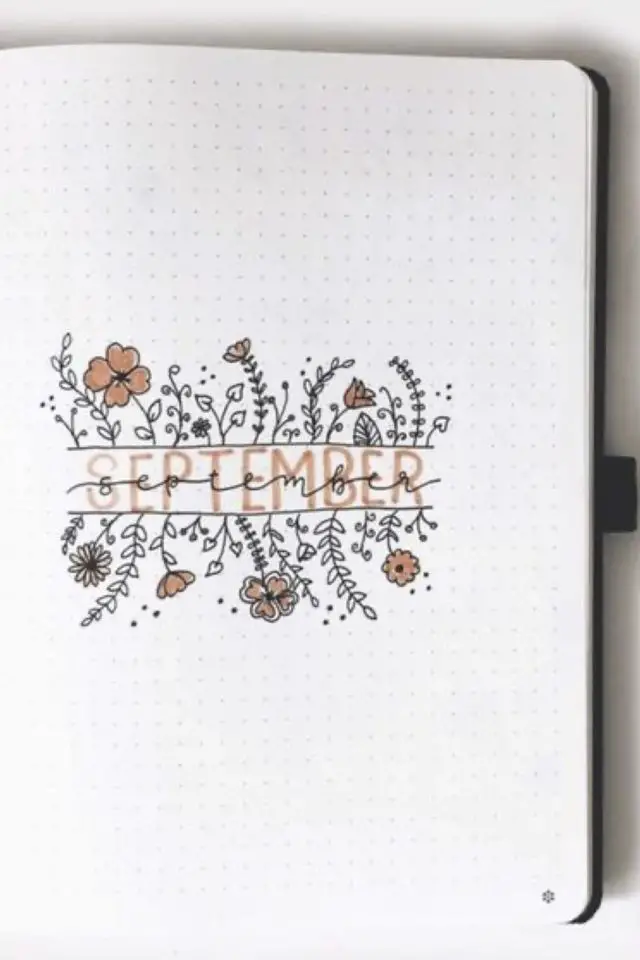 SEPTEMBER
september